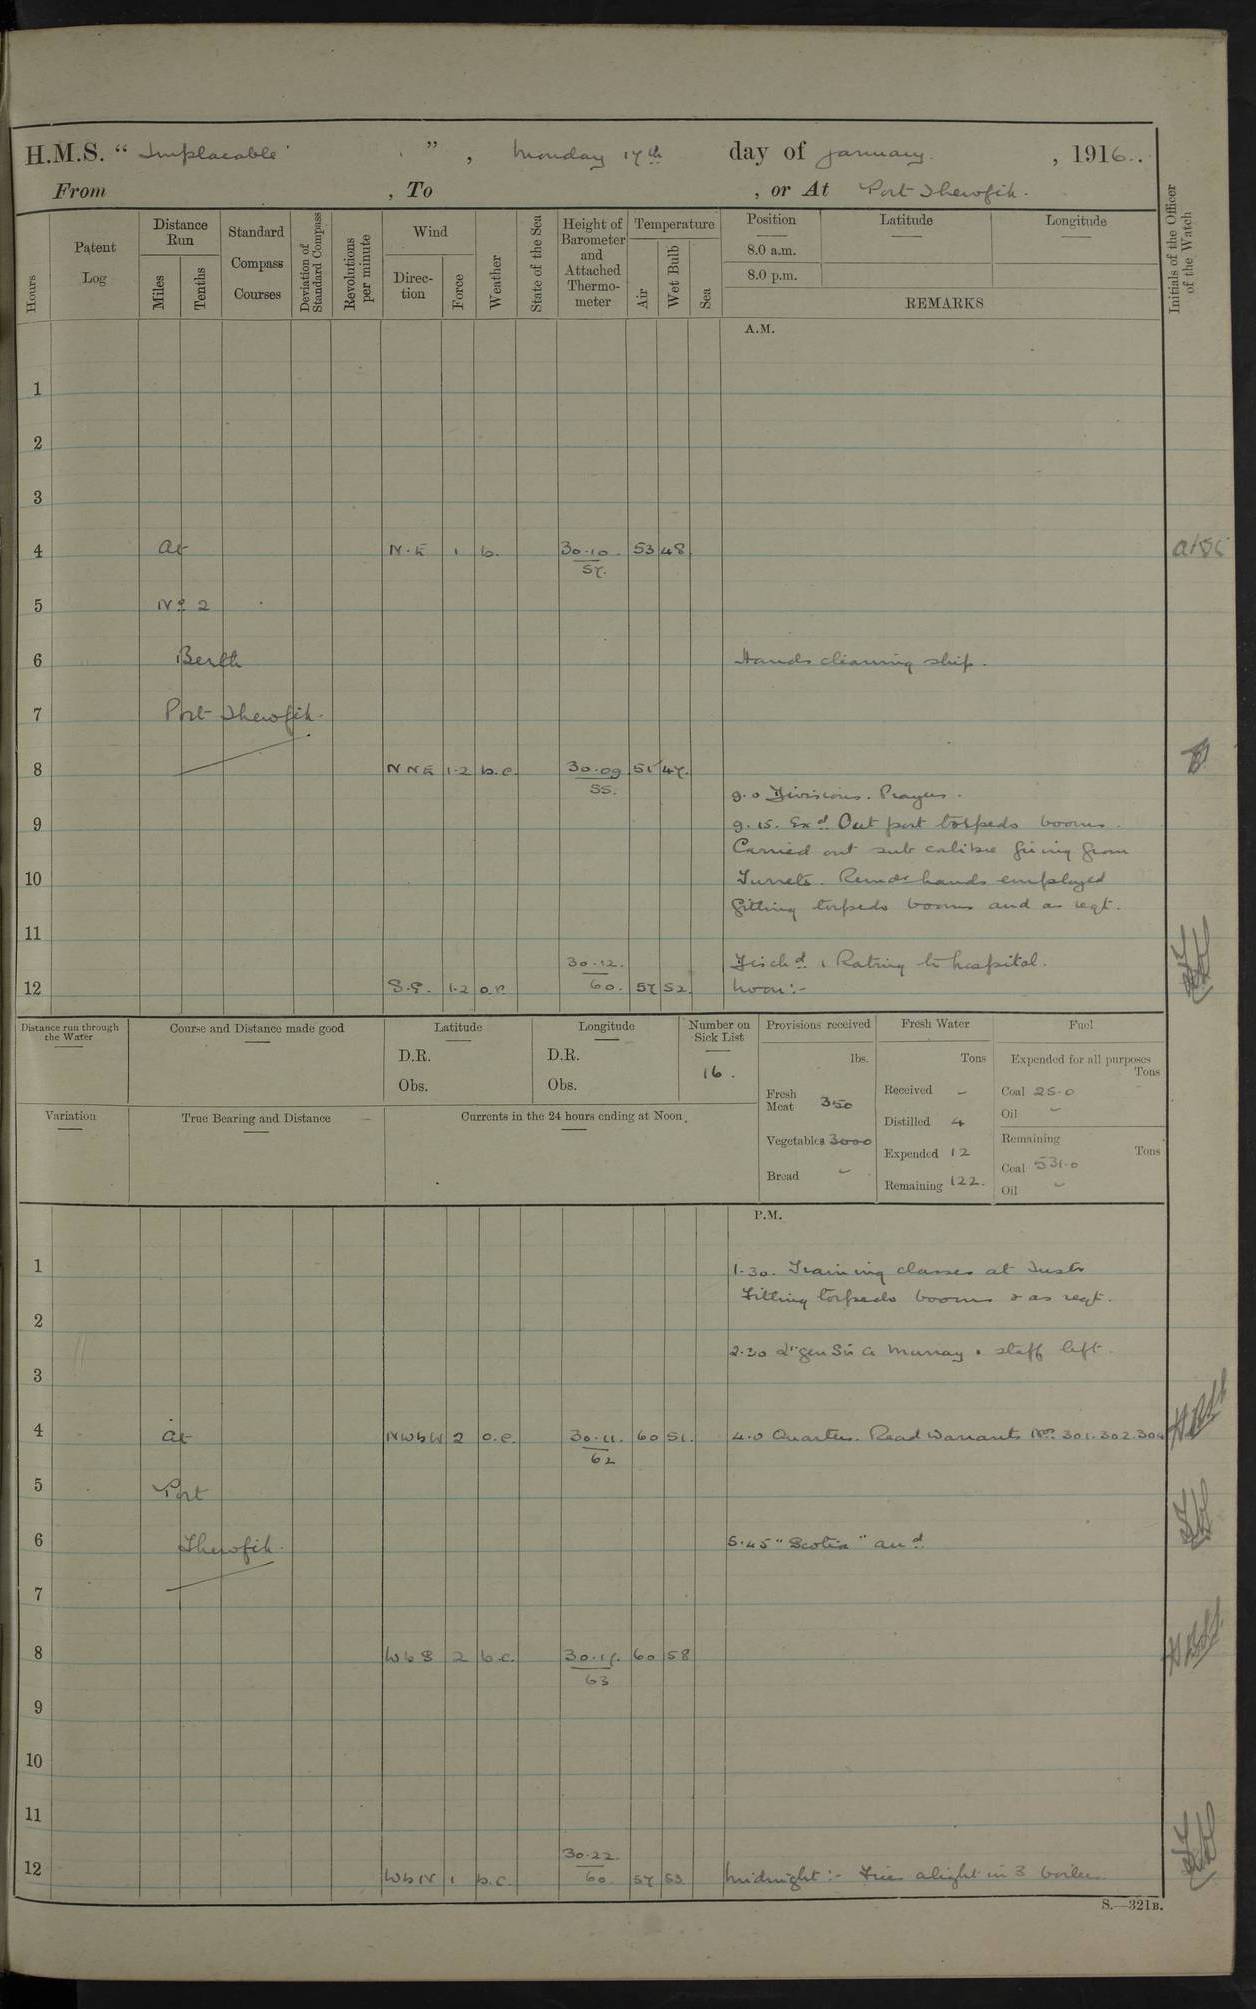 H.M.S. “ Implacable ” , Monday 17th day of January , 1916.
From , To , or At Port Thewfik.
Hours
Patent Log
Distance Run
Miles
Tenths
Standard Compass Courses
Deviation of Standard Compass
Revolutions per minute
Wind
Direction
Force
Weather
State of the Sea
Height of Barometer and Attached Thermometer
Temperature
Air
Wet Bulb
Sea
Position
Latitude
Longitude
8.0 a.m.
8.0 p.m.
REMARKS
Initials of the Officer of the Watch
A.M.
1
2
3
4 At N.E 1 b. 30.10 57. 53 48
5 No 2
6 Berth Hands cleaning ship.
7 Port Thewfik.
8 NNE 1.2 b.c. 30.09 55. 51 47.
9.0 Divisions. Prayers.
9 9.15. Exd Out port torpedo booms.
Carried out sub calibre firing from
10 Turrets. Remdr hands employed
fitting torpedo booms and as reqt.
11
Dischd 1 Rating to hospital.
12 S.E. 1.2 o.c. 30.12. 60. 57 52. Noon:-
Distance run through the Water
Course and Distance made good
Latitude
D.R.
Obs.
Longitude
D.R.
Obs.
Number on Sick List
16.
Provisions received
lbs.
Fresh Meat 350
Vegetables 3000
Bread -
Fresh Water
Tons
Received -
Distilled 4
Expended 12
Remaining 122.
Fuel
Expended for all purposes
Tons
Coal 25.0
Oil -
Remaining
Tons
Coal 531.0
Oil -
Variation
True Bearing and Distance
Currents in the 24 hours ending at Noon.
P.M.
1 1.30. Training classes at Insts
Fitting torpedo booms & as reqt.
2
2.30 Lt Gen Sir A Murray & staff left.
3
4 At NWbW 2 o.c. 30.11. 62 60 51. 4.0 Quarters. Read Warrants Nos. 301.302.304
5 Port
6 Thewfik. 5.45 “Scotia” arrd
7
8 WbS 2 b.c. 30.17. 63 60 58
9
10
11
12 WbN 1 b.c. 30.22. 60. 57 53 Midnight:- Fires alight in 3 boilers
S.—321B.